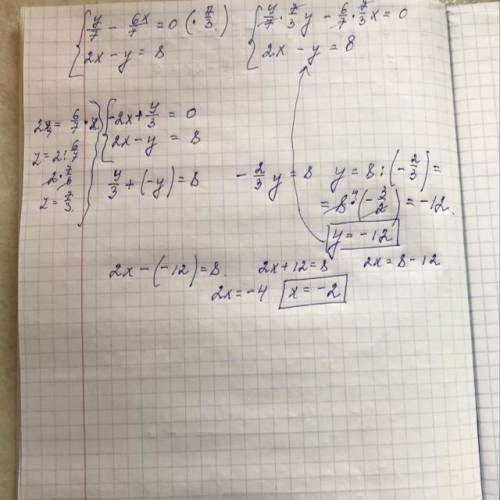 { y/7 - 6x/7 = 0 (· 7/3)
{ 2x - y = 8
{ y/7 · 7/3 y - 6/7 · 7/3 x = 0
{ 2x - y = 8
{ -2x + y/3 = 0
{ 2x - y = 8
z = 2 : 6/7
z = 7/3
y/3 + (-y) = 8
- 2/3 y = 8
y = 8 : (- 2/3) =
= 8 · (- 3/2) = -12
y = -12
2x - (-12) = 8
2x + 12 = 8
2x = 8 - 12
2x = -4
x = -2